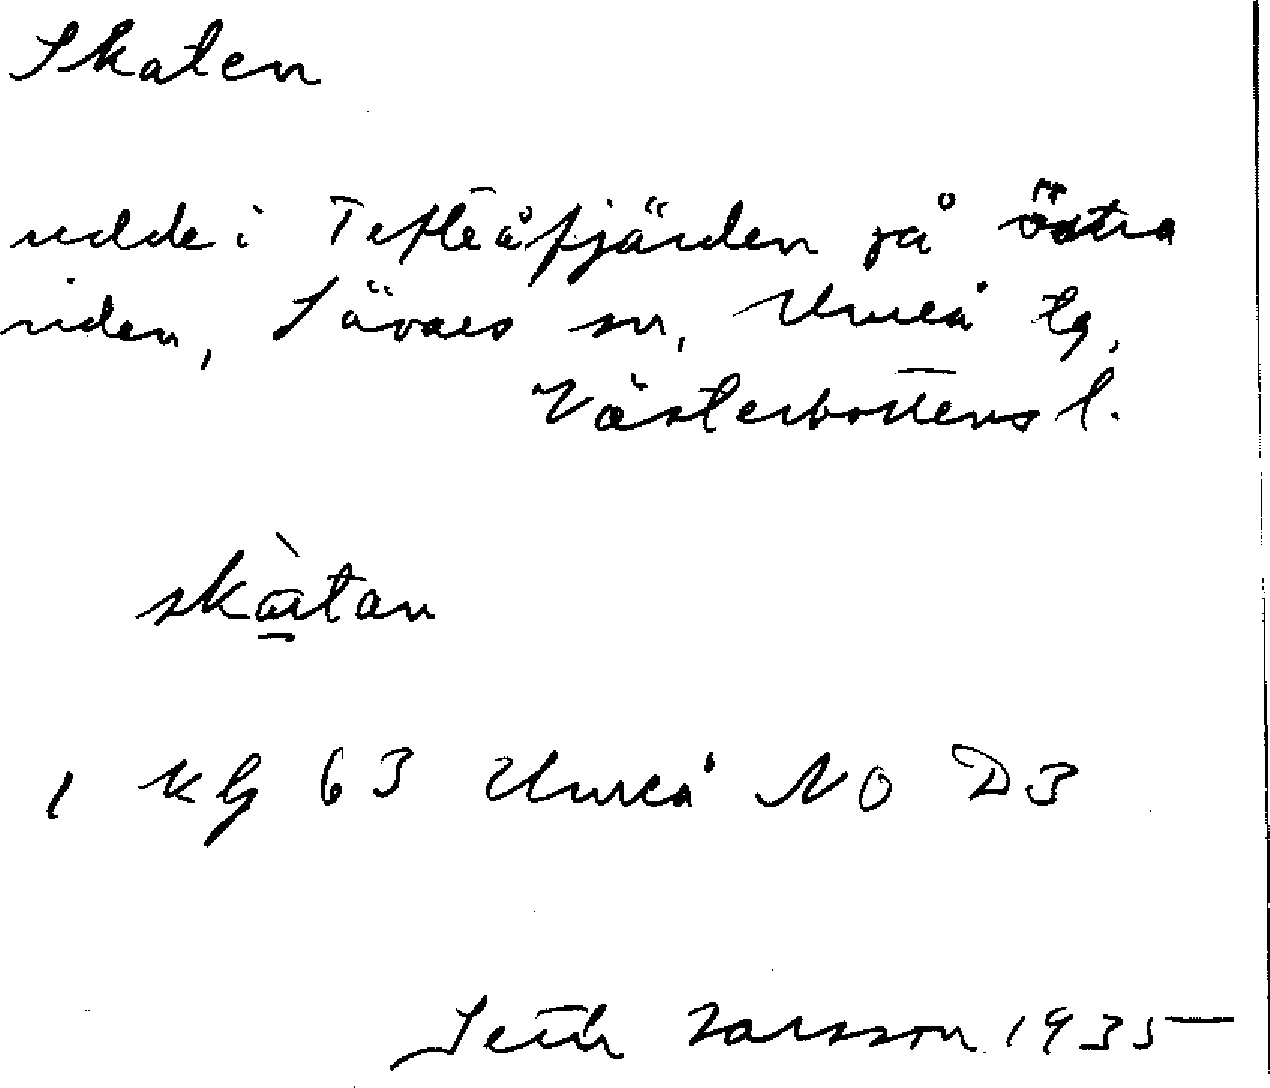 Skaten
udde i Tefteåfjärden på östra
siden, Sävars sn, Umeå tg,
Västerbottens l.
skàtan
1 KG 63 Umeå NO D3
Seth Larsson 1935